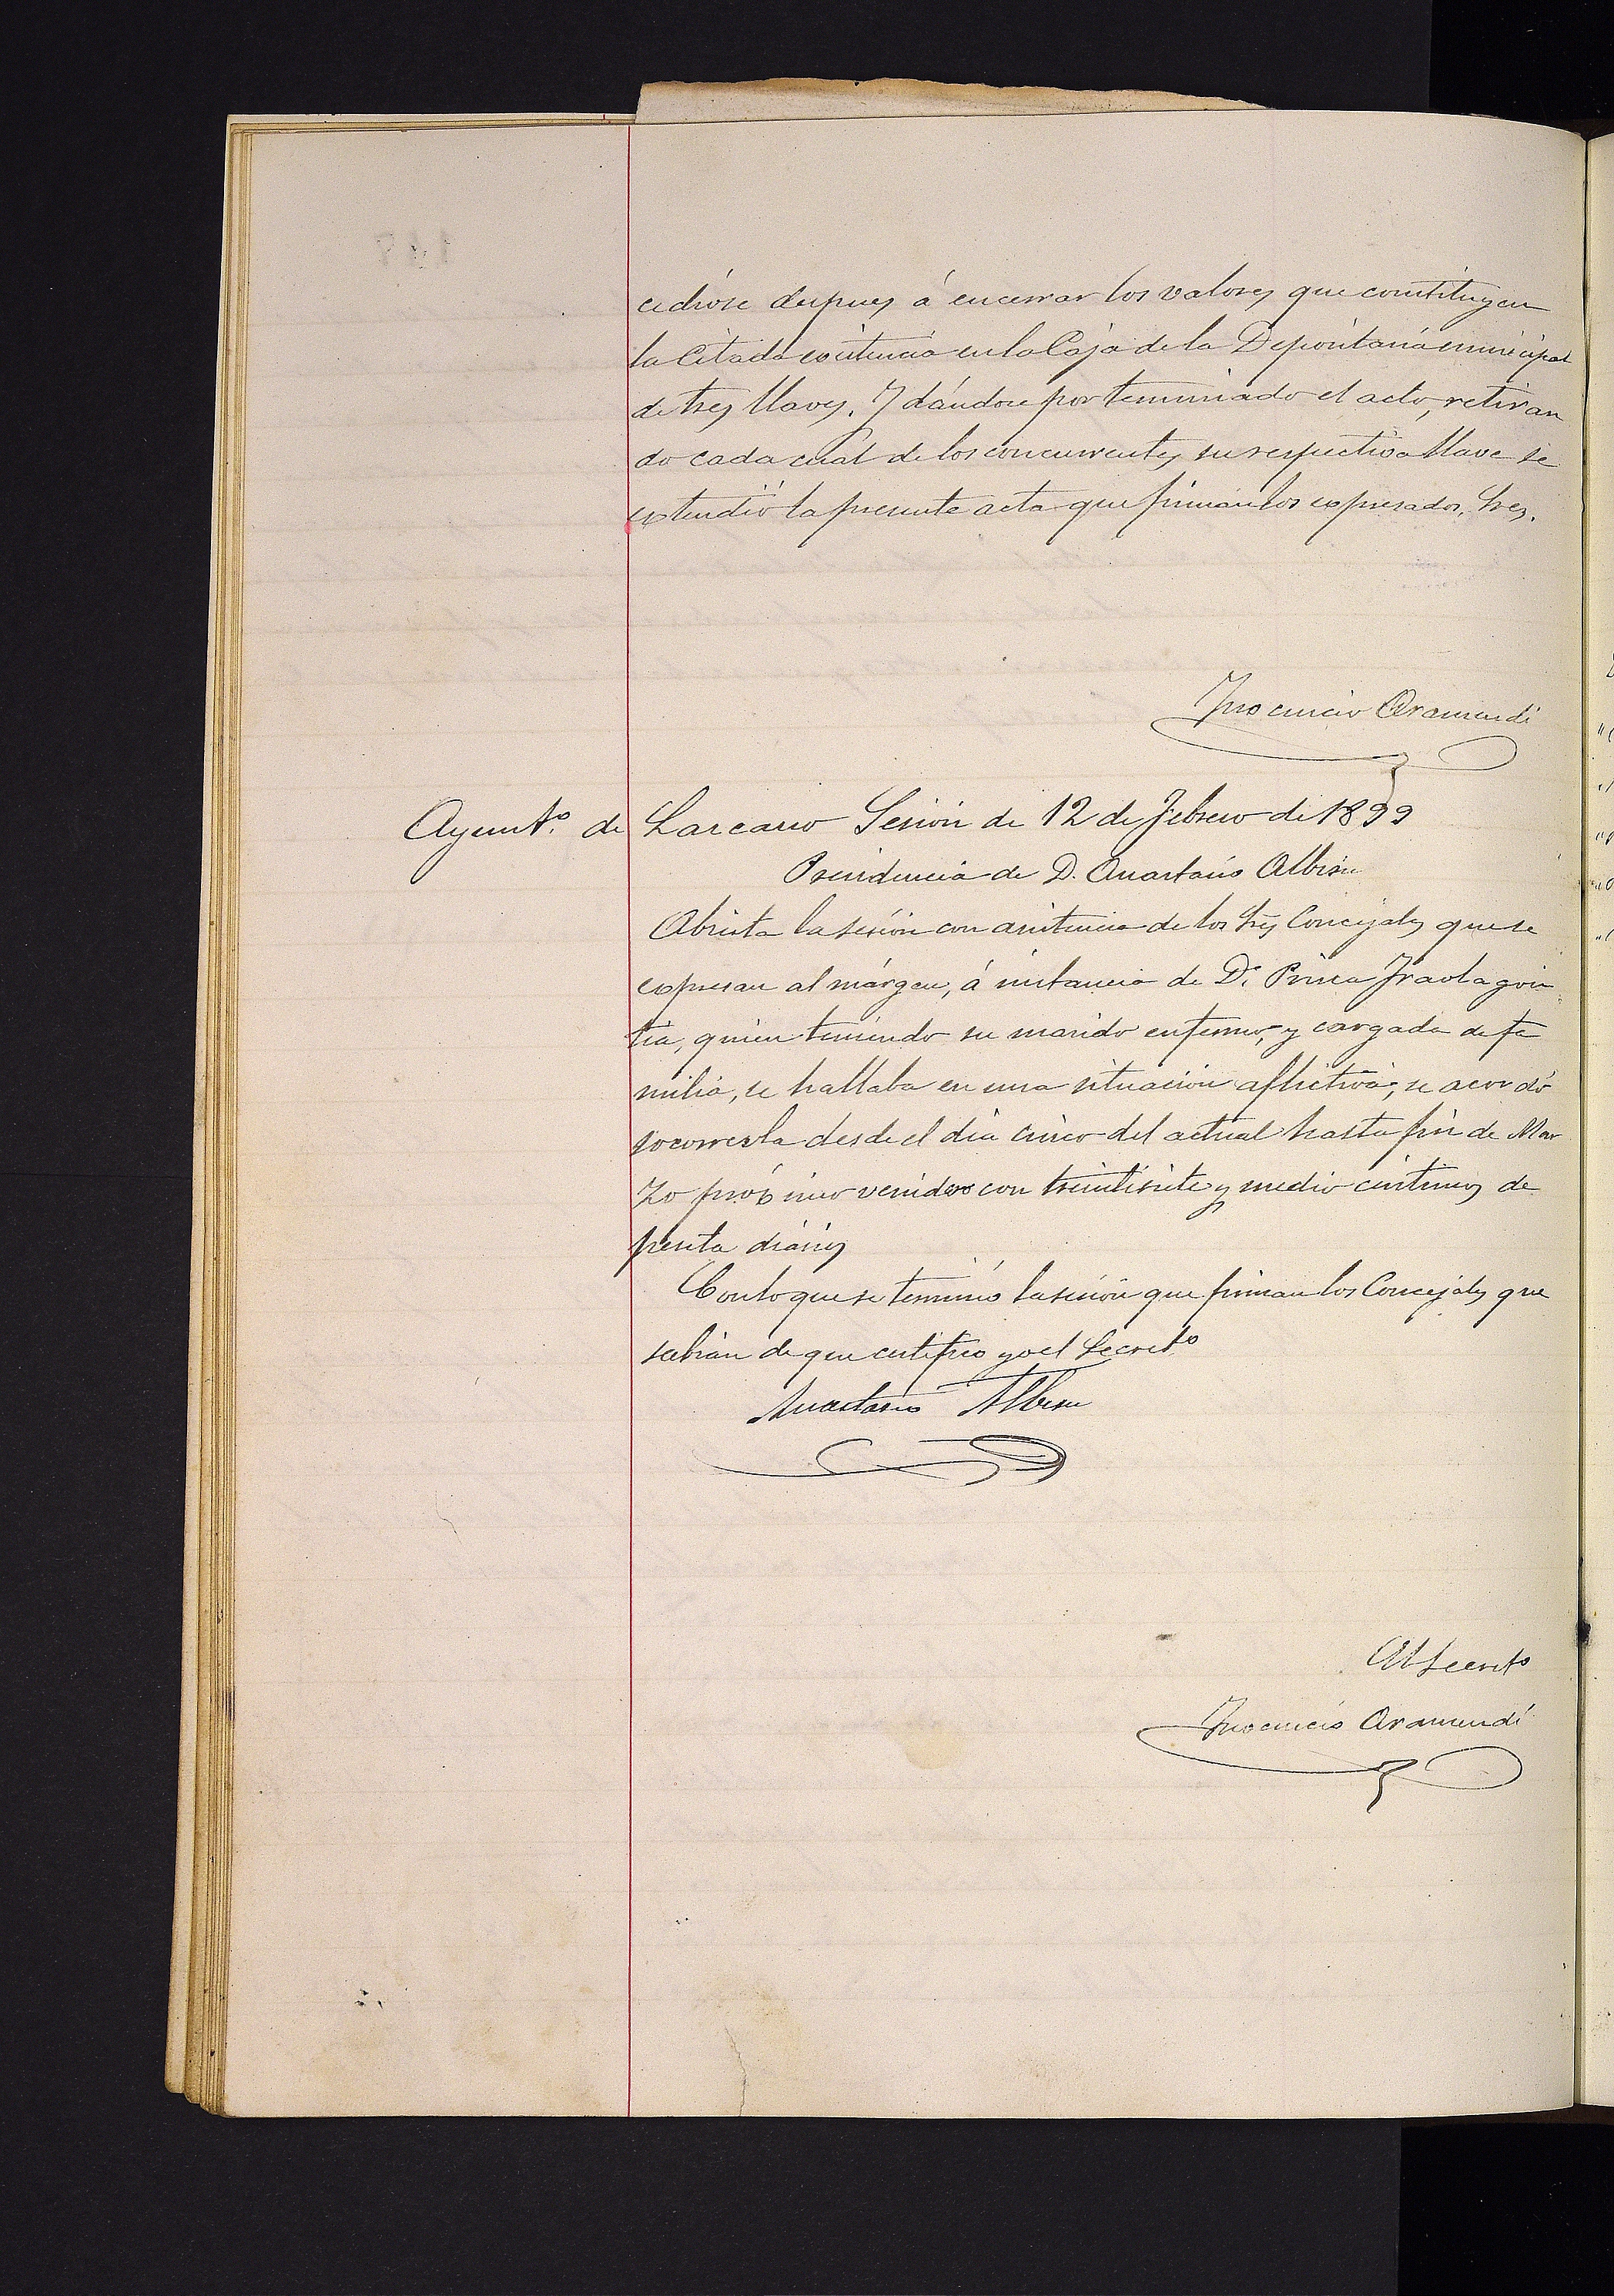 cedióse despues á encerrar los valores que constituyen
la citada existencia en la Caja de la Depositaría municipal
de tres llaves. Y dándose por terminado el acto, retiran
do cada cual de los concurrentes su respectiva llave se
extendió la presente acta que firman los expresados Sres.
Inocencio Aramendi
Ayuntº. de Lazcano Sesión de 12 de Febrero de 1899
Presidencia de D. Anastasio Albisu
Abierta la sesión con asistencia de los Sres Concejales que se
expresan al márgen, á instancia de Dª. Prisca Iraolagoi
tia, quien teniendo su marido enfermo, y cargada de fa
milia, se hallaba en una situación aflictiva, se acordó
socorrerla desde el dia cinco del actual hasta fin de Mar
zo próximo venidero con treintisiete y medio céntimos de
peseta diarios
Con lo que se terminó la sesión que firman los Concejales que
sabian de que certifico yo el Secretº
Anastasio Albisu
El Secretº
Inocencio Aramendi